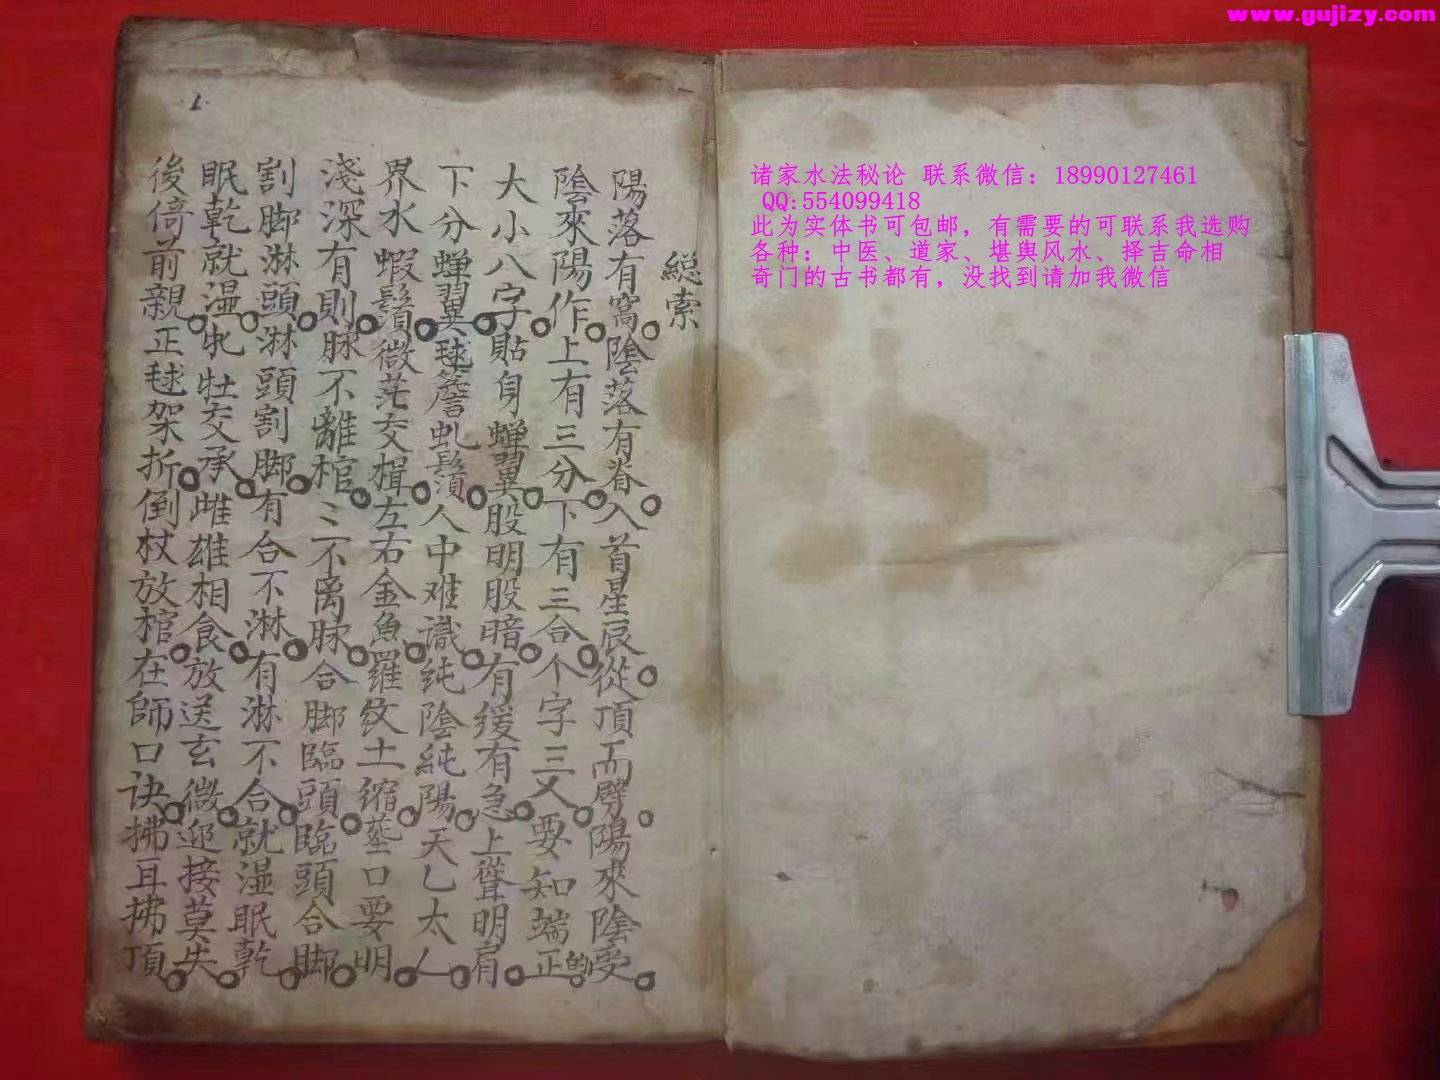 www.gujizy.com
诸家水法秘论 联系微信：18990127461
QQ:554099418
此为实体书可包邮，有需要的可联系我选购
各种：中医、道家、堪舆风水、择吉命相
奇门的古书都有，没找到请加我微信
総索
陽落有窩陰落有脊入首星辰從頂而劈陽來陰受
陰來陽作上有三分下有三合个字三叉要知端正的
大小八字貼身蝉翼股明股暗有缓有急上聳明肩
下分蝉翼毬簷虬鬚人中难識純陰純陽天乚太乚
界水蝦鬚微茫交楫左右金魚羅紋土缩塟口要明
淺深有則脉不離棺〻不离脉合脚臨頭臨頭合脚
割脚淋頭淋頭割脚有合不淋有淋不合就湿眠乾
眠乾就湿牝牡交承雌雄相食放送玄微迎接莫失
後倚前親正毬架折倒杖放棺在師口诀拂耳拂頂